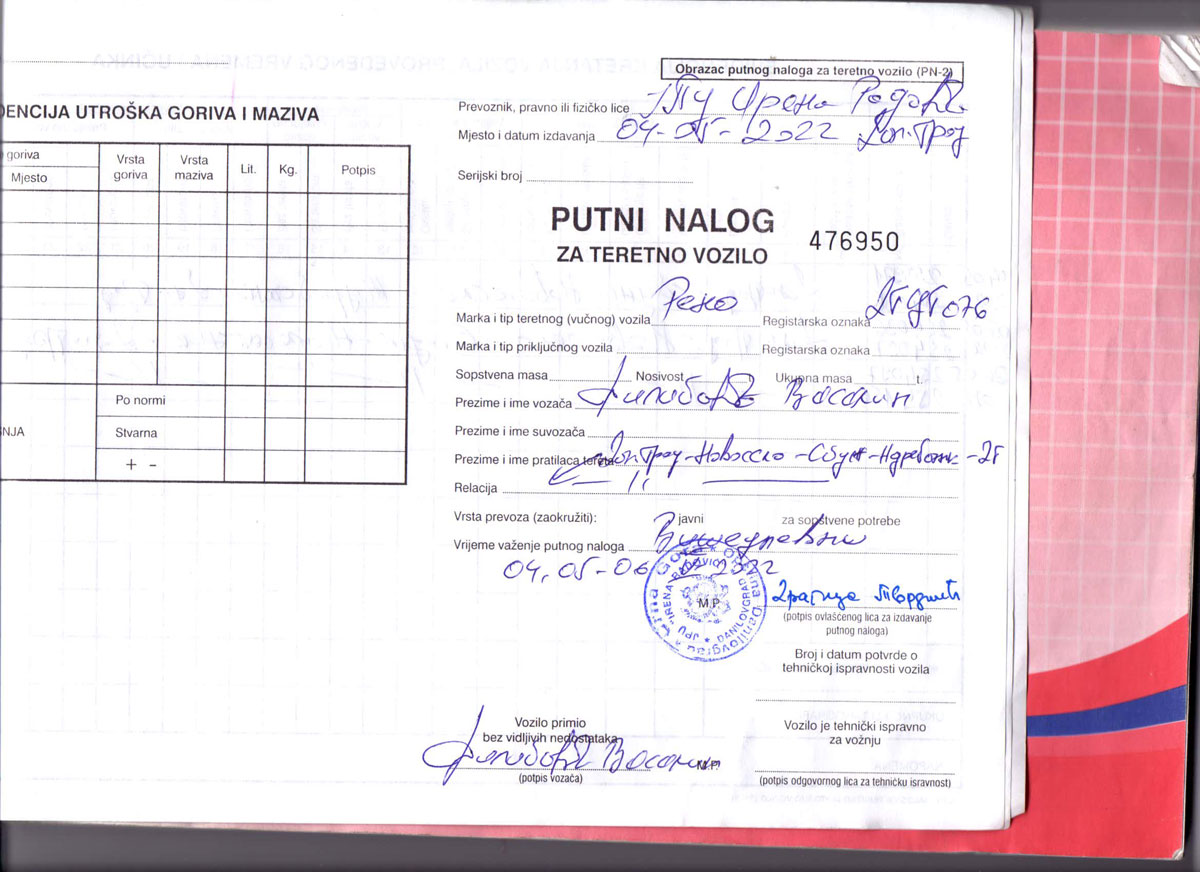 Obrazac putnog naloga za teretno vozilo (PN-2)
Prevoznik, pravno ili fizičko lice ЈПУ Ирена Радовић
Mjesto i datum izdavanja 04-05-2022
Serijski broj
PUTNI NALOG
ZA TERETNO VOZILO
476950
Marka i tip teretnog (vučnog) vozila Рено Registarska oznaka
Marka i tip priključnog vozila Registarska oznaka
Sopstvena masa Nosivost Ukupna masa t.
Prezime i ime vozača Филиповић
Prezime i ime suvozača
Prezime i ime pratilaca tereta
Relacija
Vrsta prevoza (zaokružiti): javni za sopstvene potrebe
Vrijeme važenje putnog naloga Вишедневни
04.05-06 2022
Crna Gora * Opština Danilovgrad *
JPU "IRENA RADOVIĆ" DANILOVGRAD *
M.P.
(potpis ovlašćenog lica za izdavanje
putnog naloga)
Broj i datum potvrde o
tehničkoj ispravnosti vozila
Vozilo primio
bez vidljivih nedostataka
Филиповић
M.P.
(potpis vozača)
Vozilo je tehnički ispravno
za vožnju
(potpis odgovornog lica za tehničku isravnost)
DENCIJA UTROŠKA GORIVA I MAZIVA
goriva
Mjesto
Vrsta goriva
Vrsta maziva
Lit.
Kg.
Potpis
Po normi
NJA
Stvarna
+ -